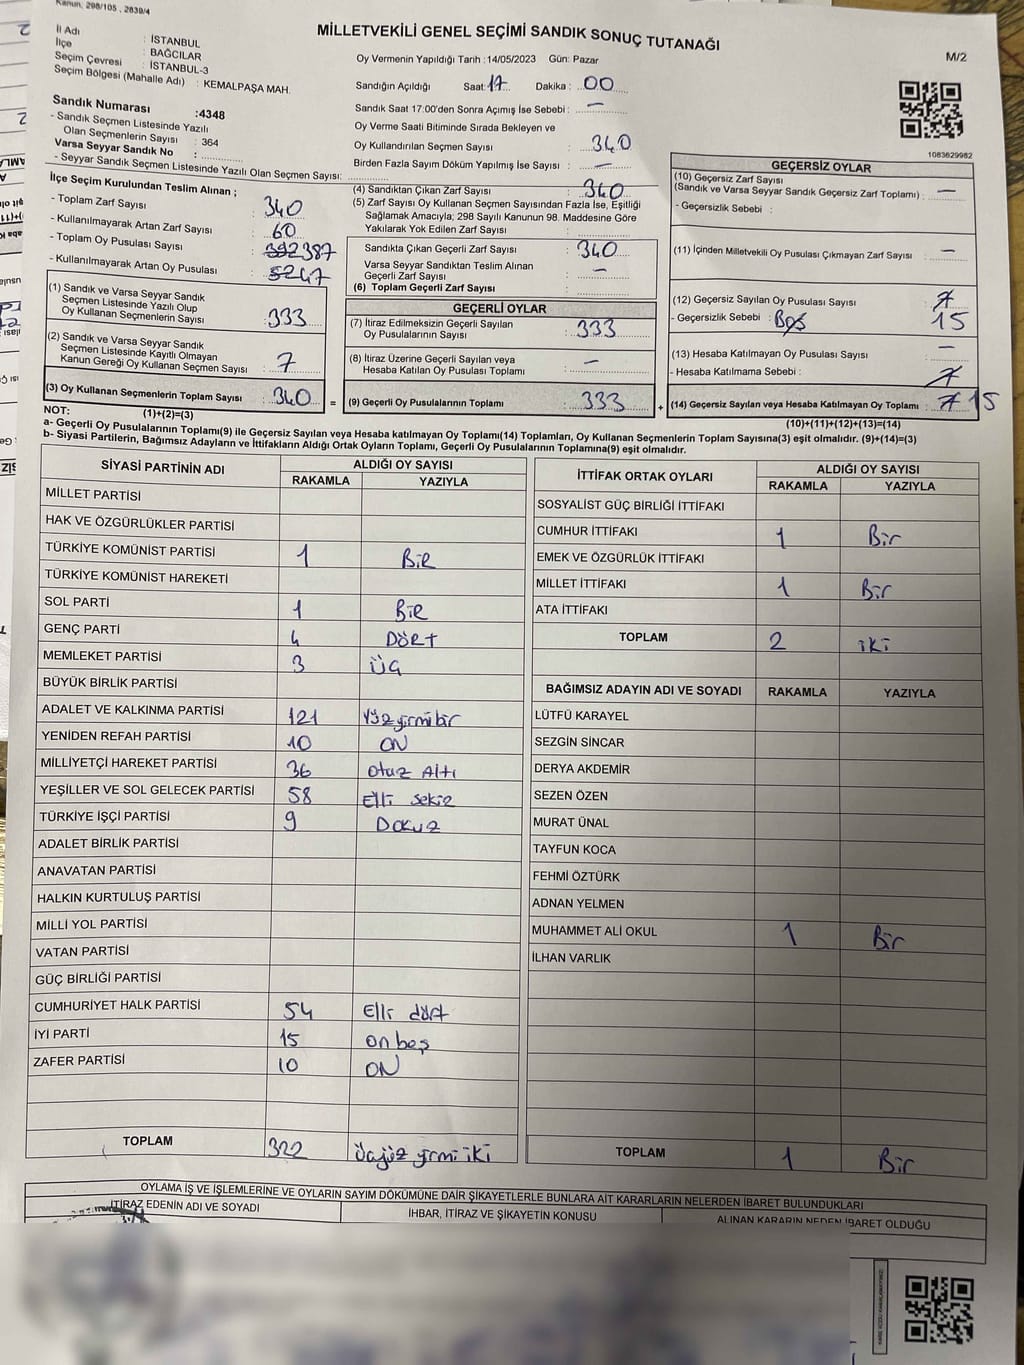 Kanun, 298/105 , 2839/4
MİLLETVEKİLİ GENEL SEÇİMİ SANDIK SONUÇ TUTANAĞI
M/2
İl Adı : İSTANBUL
İlçe : BAĞCILAR
Seçim Çevresi : İSTANBUL-3
Seçim Bölgesi (Mahalle Adı) : KEMALPAŞA MAH.
Sandık Numarası :4348
- Sandık Seçmen Listesinde Yazılı
Olan Seçmenlerin Sayısı : 364
Varsa Seyyar Sandık No :
- Seyyar Sandık Seçmen Listesinde Yazılı Olan Seçmen Sayısı:
Oy Vermenin Yapıldığı Tarih : 14/05/2023 Gün: Pazar
Sandığın Açıldığı Saat: 17 Dakika : 00
Sandık Saat 17:00'den Sonra Açımış İse Sebebi : —
Oy Verme Saati Bitiminde Sırada Bekleyen ve
Oy Kullandırılan Seçmen Sayısı : 340
Birden Fazla Sayım Döküm Yapılmış İse Sayısı : —
1083629982
İlçe Seçim Kurulundan Teslim Alınan ;
- Toplam Zarf Sayısı : 340
- Kullanılmayarak Artan Zarf Sayısı : 60
- Toplam Oy Pusulası Sayısı : 392 387
- Kullanılmayarak Artan Oy Pusulası : 52 47
(1) Sandık ve Varsa Seyyar Sandık
Seçmen Listesinde Yazılı Olup
Oy Kullanan Seçmenlerin Sayısı : 333
(2) Sandık ve Varsa Seyyar Sandık
Seçmen Listesinde Kayıtlı Olmayan
Kanun Gereği Oy Kullanan Seçmen Sayısı : 7
(3) Oy Kullanan Seçmenlerin Toplam Sayısı : 340
(1)+(2)=(3)
(4) Sandıktan Çıkan Zarf Sayısı : 340
(5) Zarf Sayısı Oy Kullanan Seçmen Sayısından Fazla İse, Eşitliği
Sağlamak Amacıyla; 298 Sayılı Kanunun 98. Maddesine Göre
Yakılarak Yok Edilen Zarf Sayısı :
Sandıkta Çıkan Geçerli Zarf Sayısı : 340
Varsa Seyyar Sandıktan Teslim Alınan
Geçerli Zarf Sayısı : —
(6) Toplam Geçerli Zarf Sayısı :
GEÇERLİ OYLAR
(7) İtiraz Edilmeksizin Geçerli Sayılan
Oy Pusulalarının Sayısı : 333
(8) İtiraz Üzerine Geçerli Sayılan veya
Hesaba Katılan Oy Pusulası Toplamı : —
= (9) Geçerli Oy Pusulalarının Toplamı : 333 +
GEÇERSİZ OYLAR
(10) Geçersiz Zarf Sayısı
(Sandık ve Varsa Seyyar Sandık Geçersiz Zarf Toplamı) : —
- Geçersizlik Sebebi :
(11) İçinden Milletvekili Oy Pusulası Çıkmayan Zarf Sayısı : —
(12) Geçersiz Sayılan Oy Pusulası Sayısı : 7
- Geçersizlik Sebebi : Boş 15
(13) Hesaba Katılmayan Oy Pusulası Sayısı : —
- Hesaba Katılmama Sebebi : 7
(14) Geçersiz Sayılan veya Hesaba Katılmayan Oy Toplamı : 7 15
(10)+(11)+(12)+(13)=(14)
NOT:
a- Geçerli Oy Pusulalarının Toplamı(9) ile Geçersiz Sayılan veya Hesaba katılmayan Oy Toplamı(14) Toplamları, Oy Kullanan Seçmenlerin Toplam Sayısına(3) eşit olmalıdır. (9)+(14)=(3)
b- Siyasi Partilerin, Bağımsız Adayların ve İttifakların Aldığı Ortak Oyların Toplamı, Geçerli Oy Pusulalarının Toplamına(9) eşit olmalıdır.
SİYASİ PARTİNİN ADI ALDIĞI OY SAYISI
RAKAMLA YAZIYLA
MİLLET PARTİSİ
HAK VE ÖZGÜRLÜKLER PARTİSİ
TÜRKİYE KOMÜNİST PARTİSİ 1 BİR
TÜRKİYE KOMÜNİST HAREKETİ
SOL PARTİ 1 BİR
GENÇ PARTİ 4 DÖRT
MEMLEKET PARTİSİ 3 ÜÇ
BÜYÜK BİRLİK PARTİSİ
ADALET VE KALKINMA PARTİSİ 121 Yüzyirmibir
YENİDEN REFAH PARTİSİ 10 ON
MİLLİYETÇİ HAREKET PARTİSİ 36 Otuz Altı
YEŞİLLER VE SOL GELECEK PARTİSİ 58 Elli sekiz
TÜRKİYE İŞÇİ PARTİSİ 9 Dokuz
ADALET BİRLİK PARTİSİ
ANAVATAN PARTİSİ
HALKIN KURTULUŞ PARTİSİ
MİLLİ YOL PARTİSİ
VATAN PARTİSİ
GÜÇ BİRLİĞİ PARTİSİ
CUMHURİYET HALK PARTİSİ 54 Elli dört
İYİ PARTİ 15 on beş
ZAFER PARTİSİ 10 ON
TOPLAM 322 Üçyüz yirmi iki
İTTİFAK ORTAK OYLARI ALDIĞI OY SAYISI
RAKAMLA YAZIYLA
SOSYALİST GÜÇ BİRLİĞİ İTTİFAKI
CUMHUR İTTİFAKI 1 Bir
EMEK VE ÖZGÜRLÜK İTTİFAKI
MİLLET İTTİFAKI 1 Bir
ATA İTTİFAKI
TOPLAM 2 iki
BAĞIMSIZ ADAYIN ADI VE SOYADI RAKAMLA YAZIYLA
LÜTFÜ KARAYEL
SEZGİN SİNCAR
DERYA AKDEMİR
SEZEN ÖZEN
MURAT ÜNAL
TAYFUN KOCA
FEHMİ ÖZTÜRK
ADNAN YELMEN
MUHAMMET ALİ OKUL 1 Bir
İLHAN VARLIK
TOPLAM 1 Bir
OYLAMA İŞ VE İŞLEMLERİNE VE OYLARIN SAYIM DÖKÜMÜNE DAİR ŞİKAYETLERLE BUNLARA AİT KARARLARIN NELERDEN İBARET BULUNDUKLARI
İTİRAZ EDENİN ADI VE SOYADI İHBAR, İTİRAZ VE ŞİKAYETİN KONUSU ALINAN KARARIN NEDEN İBARET OLDUĞU